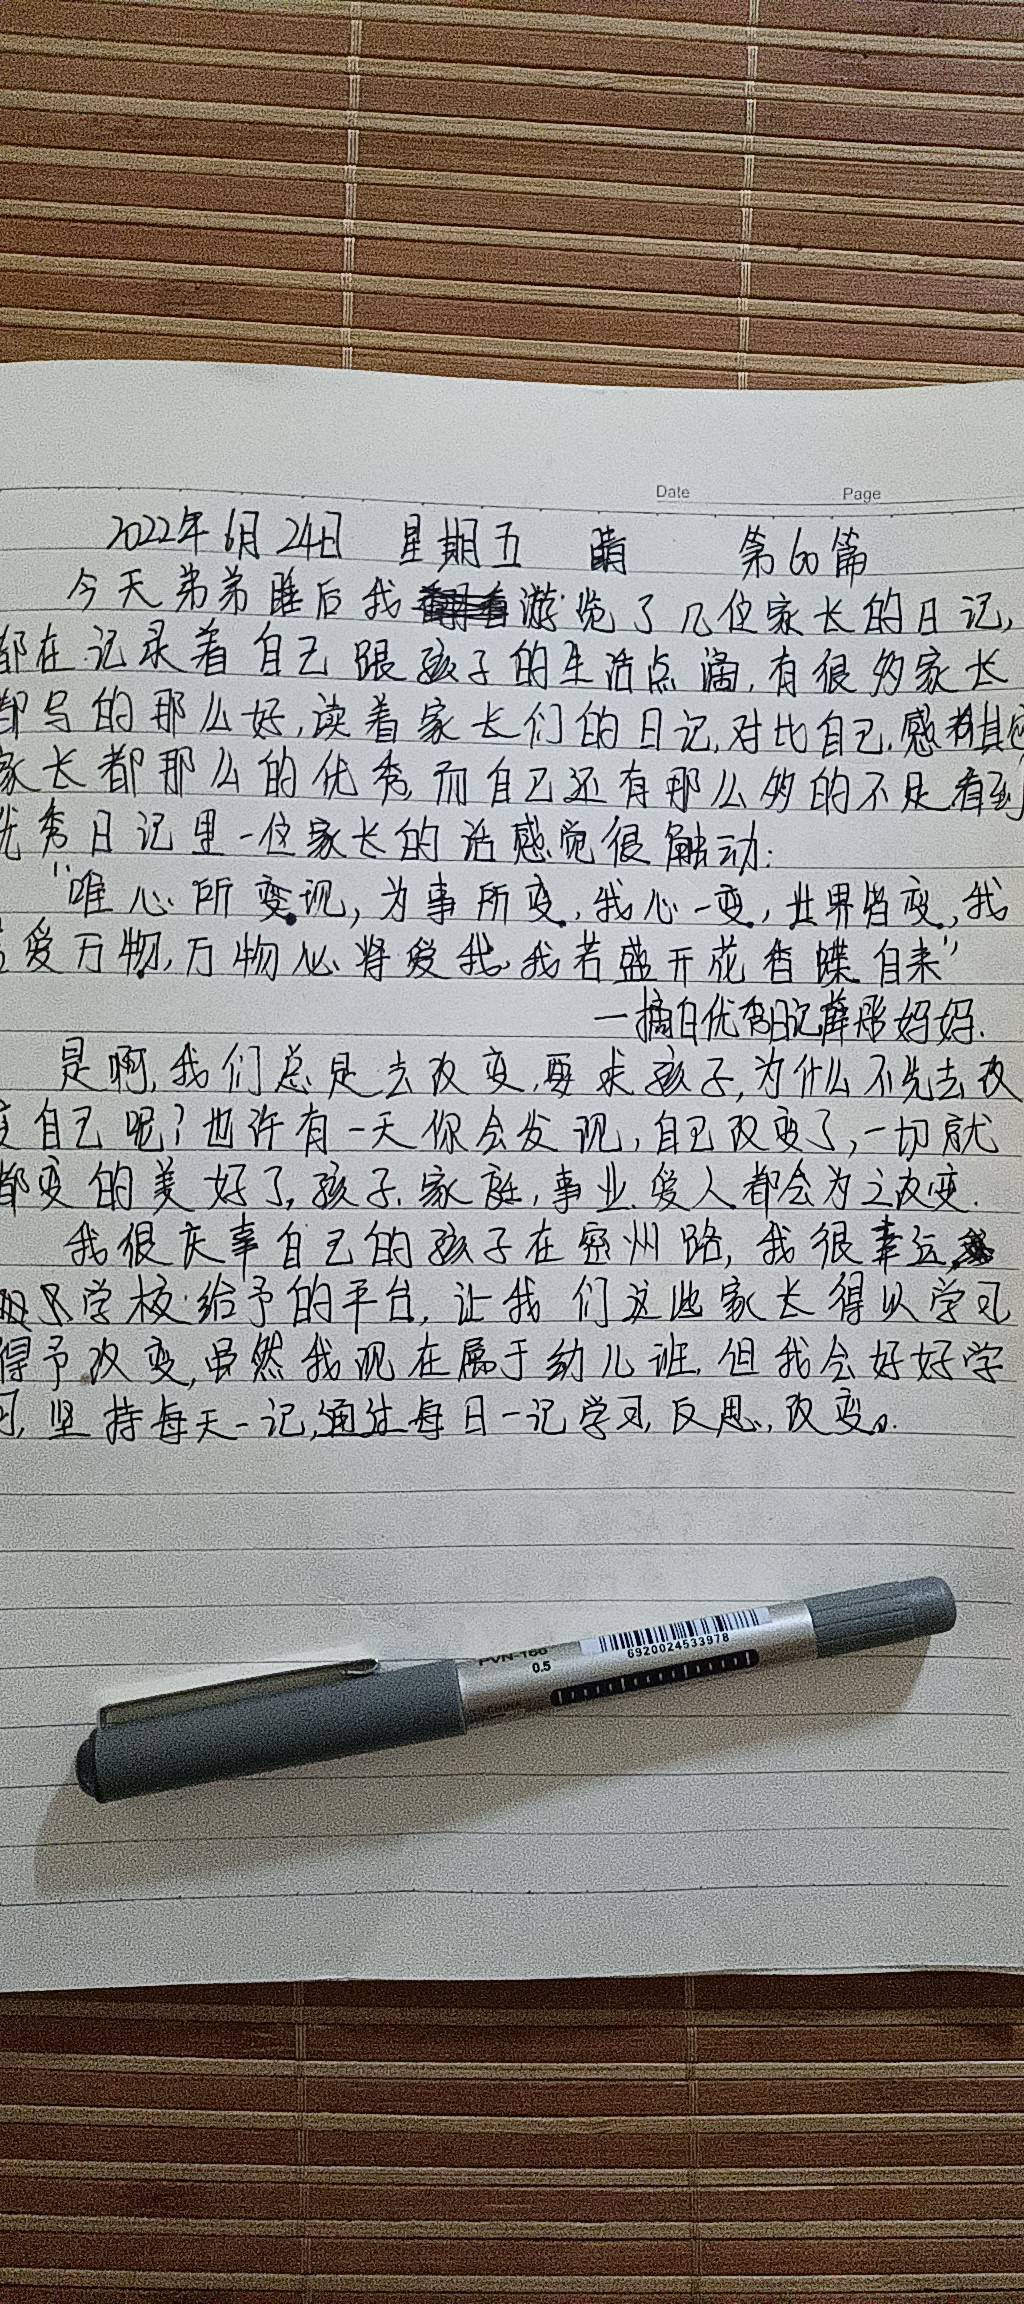 Date Page
2022年6月24日 星期五 晴 第60篇
今天弟弟睡后我游览了几位家长的日记,
都在记录着自己跟孩子的生活点滴,有很多家长
都写的那么好,读着家长们的日记,对比自己,感觉其他
家长都那么的优秀,而自己还有那么多的不足,看到
优秀日记里一位家长的话感觉很触动:
"唯心所变现,为事所变,我心一变,世界皆变,我
爱万物,万物必将爱我,我若盛开花香蝶自来"
—摘自优秀日记薛彤妈妈.
是啊,我们总是去改变,要求孩子,为什么不先去改
变自己呢?也许有一天你会发现,自己改变了,一切就
都变的美好了,孩子,家庭,事业,爱人都会为之改变.
我很庆幸自己的孩子在密州路,我很幸运,
学校给予的平台,让我们这些家长得以学习
得予改变,虽然我现在属于幼儿班,但我会好好学
习,坚持每天一记,通过每日一记学习,反思,改变。
PVN-166
0.5
6920024533978